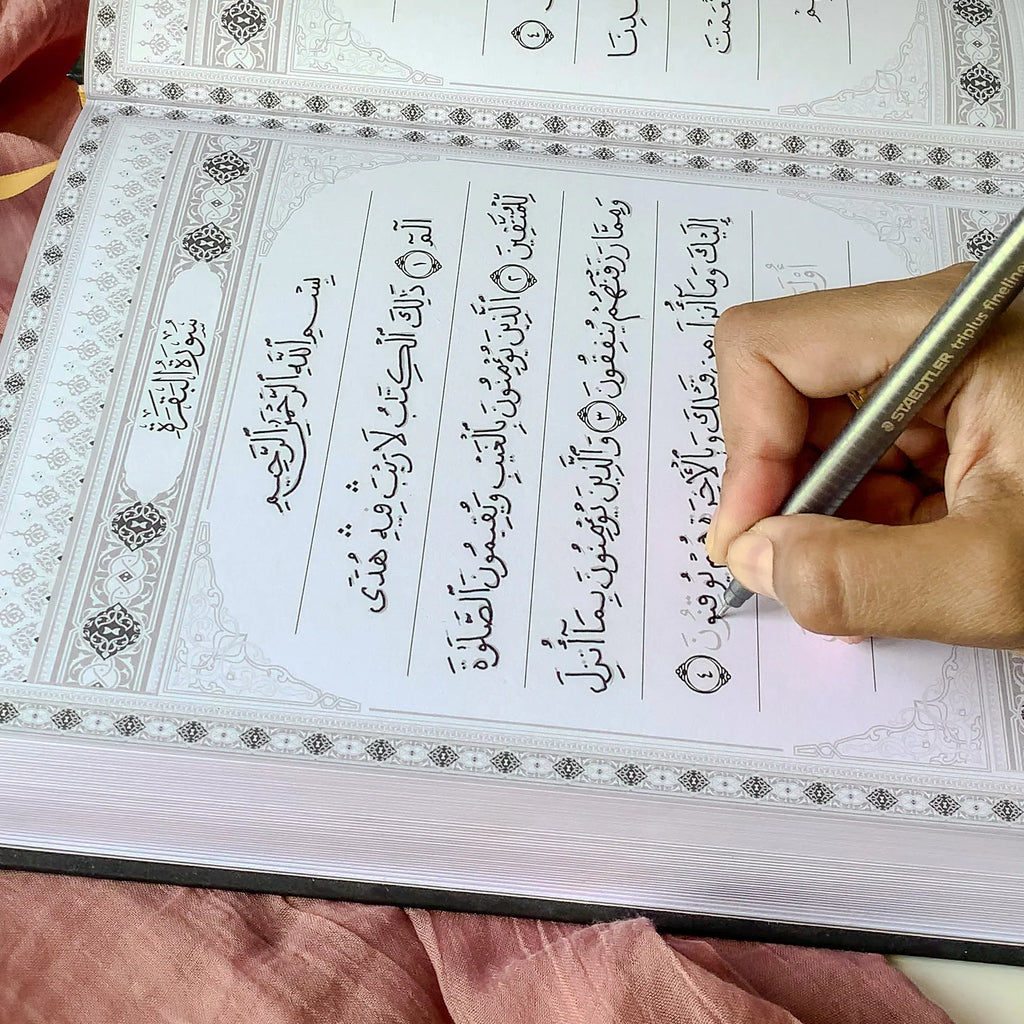 سُورَةُ البَقَرَةِ
بِسْمِ ٱللَّهِ ٱلرَّحْمَٰنِ ٱلرَّحِيمِ
الٓمٓ ١ ذَٰلِكَ ٱلْكِتَٰبُ لَا رَيْبَ ۛ فِيهِ ۛ هُدًى
لِّلْمُتَّقِينَ ٢ ٱلَّذِينَ يُؤْمِنُونَ بِٱلْغَيْبِ وَيُقِيمُونَ ٱلصَّلَوٰةَ
وَمِمَّا رَزَقْنَٰهُمْ يُنفِقُونَ ٣ وَٱلَّذِينَ يُؤْمِنُونَ بِمَآ أُنزِلَ
إِلَيْكَ وَمَآ أُنزِلَ مِن قَبْلِكَ وَبِٱلْأَخِرَةِ هُمْ يُوقِنُونَ ٤
STAEDTLER triplus fineline